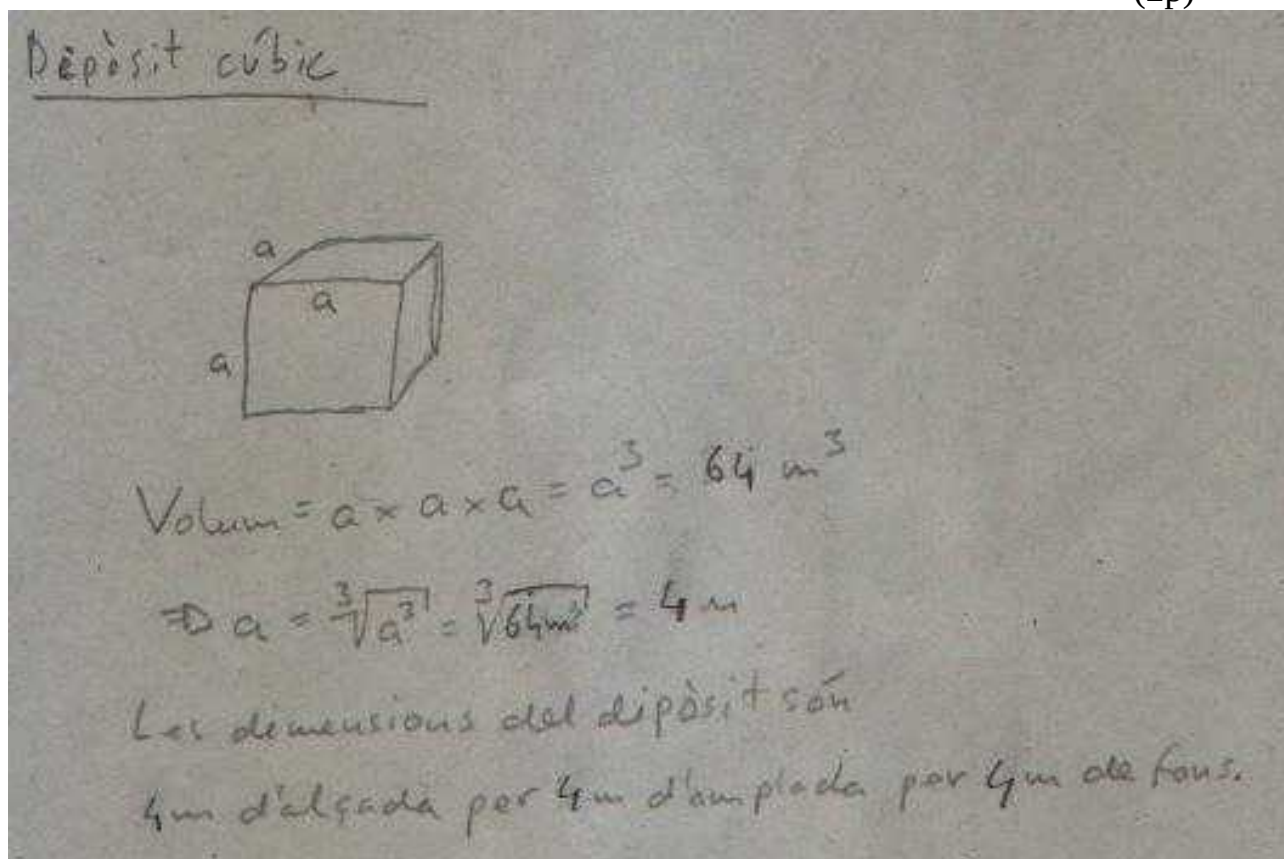 Dipòsit cúbic
a
a
a
Volum = a × a × a = a³ = 64 m³
⇒ a = ∛a³ = ∛64m³ = 4 m
Les dimensions del dipòsit són
4m d'alçada per 4m d'amplada per 4m de fons.